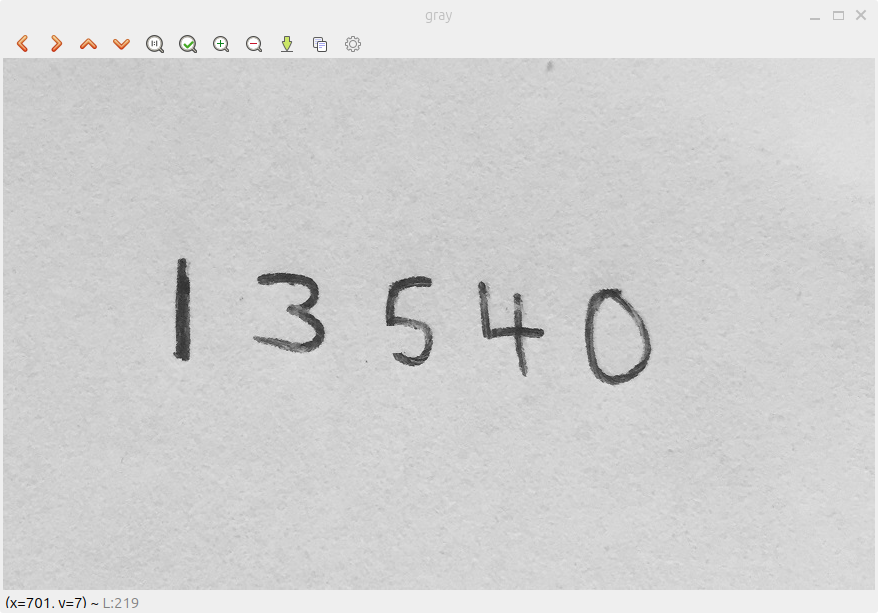 gray
1 3 5 4 0
(x=701, y=7) ~ L:219